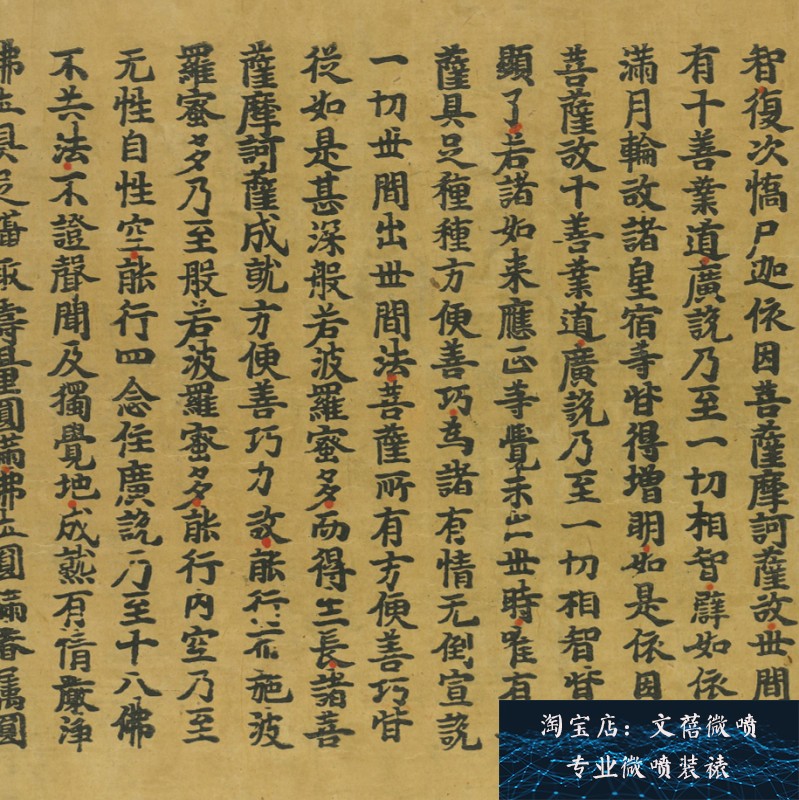 智復次憍尸迦依因菩薩摩訶薩故世間
有十善業道廣說乃至一切相智譬如依
滿月輪故諸星宿等皆得增明如是依因
菩薩故十善業道廣說乃至一切相智皆
顯了若諸如來應正等覺未出世時唯有
薩具足種種方便善巧為諸有情无倒宣說
一切世間出世間法菩薩所有方便善巧皆
從如是甚深般若波羅蜜多而得生長諸菩
薩摩訶薩成就方便善巧力故能行布施波
羅蜜多乃至般若波羅蜜多能行內空乃至
无性自性空能行四念住廣說乃至十八佛
不共法不證聲聞及獨覺地成熟有情嚴淨
佛土具足攝取壽量圓滿佛土圓滿眷屬圓
淘宝店：文蓓微喷
专业微喷装裱